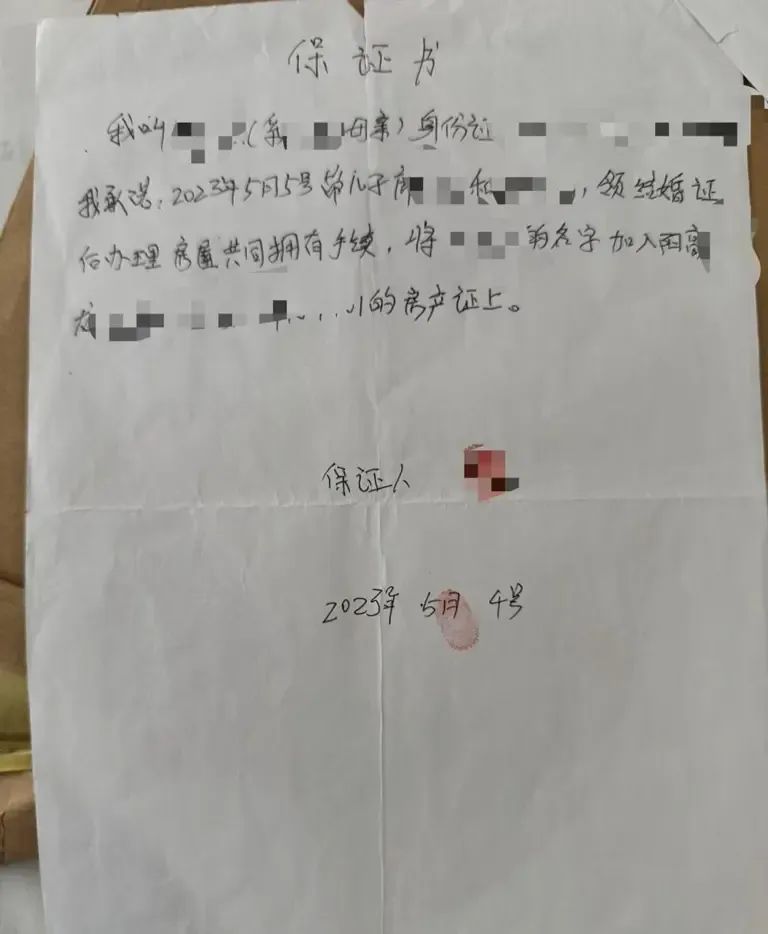 保证书
我叫 (系 母亲)身份证
我承诺:2023年5月5号给儿子 和 ,领结婚证
后办理房屋共同拥有手续,将 的名字加入阳高
的房产证上。
保证人
2023年 5月 4号